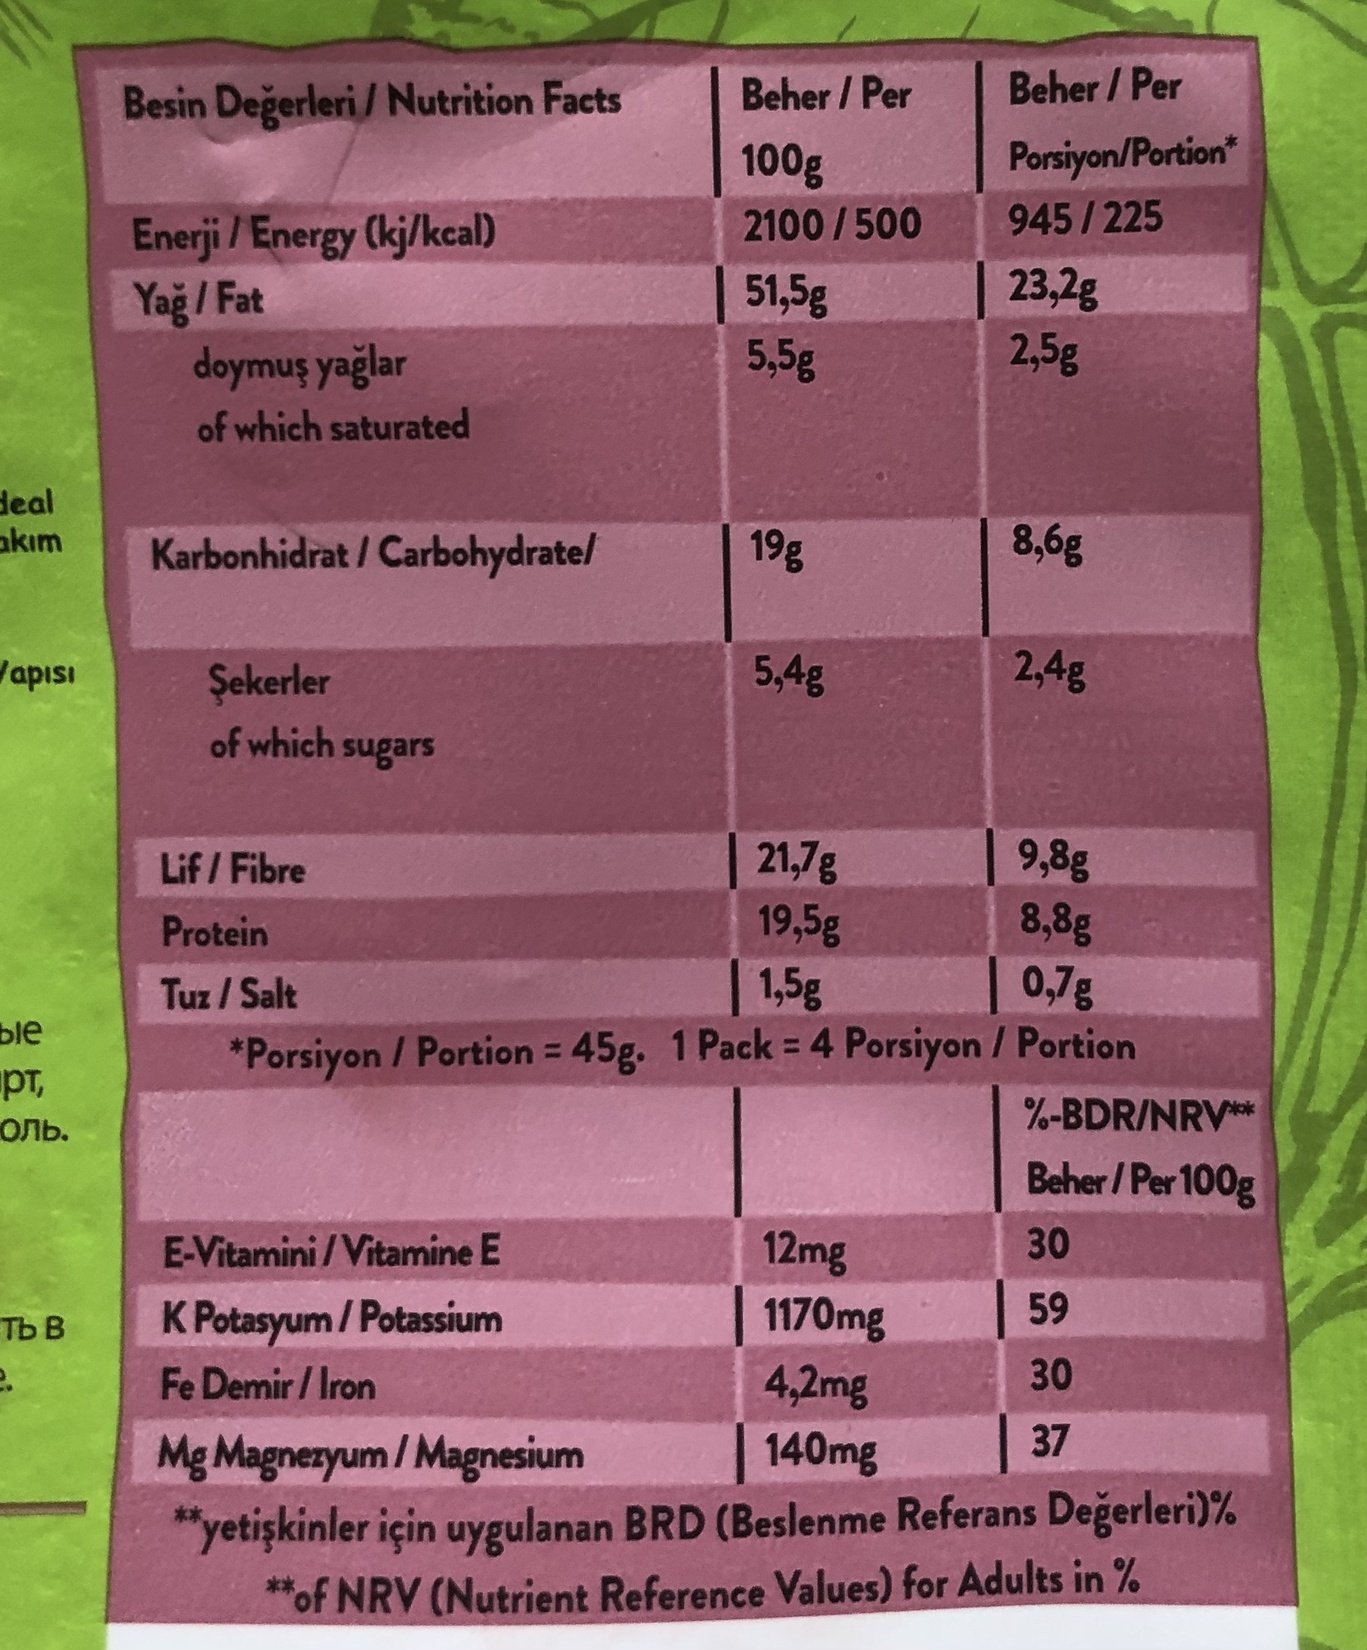 Besin Değerleri / Nutrition Facts Beher / Per 100g Beher / Per Porsiyon/Portion*
Enerji / Energy (kj/kcal) 2100 / 500 945 / 225
Yağ / Fat 51,5g 23,2g
doymuş yağlar 5,5g 2,5g
of which saturated
Karbonhidrat / Carbohydrate/ 19g 8,6g
Şekerler 5,4g 2,4g
of which sugars
Lif / Fibre 21,7g 9,8g
Protein 19,5g 8,8g
Tuz / Salt 1,5g 0,7g
*Porsiyon / Portion = 45g. 1 Pack = 4 Porsiyon / Portion
%-BDR/NRV**
Beher / Per 100g
E-Vitamini / Vitamine E 12mg 30
K Potasyum / Potassium 1170mg 59
Fe Demir / Iron 4,2mg 30
Mg Magnezyum / Magnesium 140mg 37
**yetişkinler için uygulanan BRD (Beslenme Referans Değerleri)%
**of NRV (Nutrient Reference Values) for Adults in %